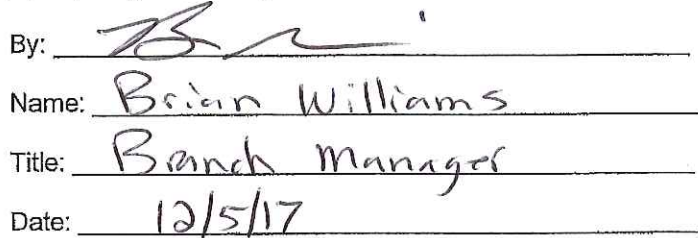 By:
Name: Brian Williams
Title: Branch Manager
Date: 12/5/17